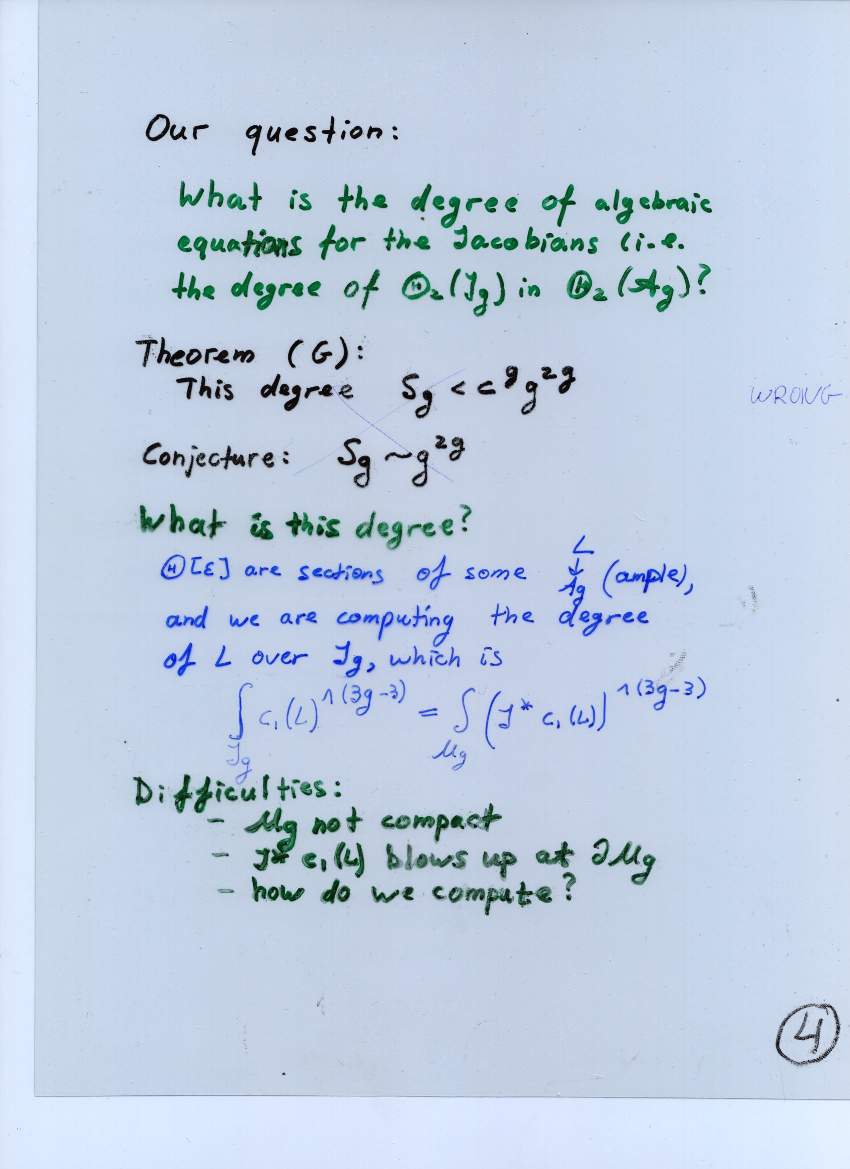 Our question:
What is the degree of algebraic
equations for the Jacobians (i.e.
the degree of Θ₂(𝒥g) in Θ₂(𝒜g)?
Theorem (G):
This degree Sg < c^g g^2g
WRONG
Conjecture: Sg ~ g^2g
What is this degree?
Θ[ε] are sections of some L ↓ 𝒜g (ample),
and we are computing the degree
of L over 𝒥g, which is
∫_𝒥g c₁(L)^∧(3g-3) = ∫_ℳg (J* c₁(L))^∧(3g-3)
Difficulties:
- ℳg not compact
- J* c₁(L) blows up at ∂ℳg
- how do we compute?
4